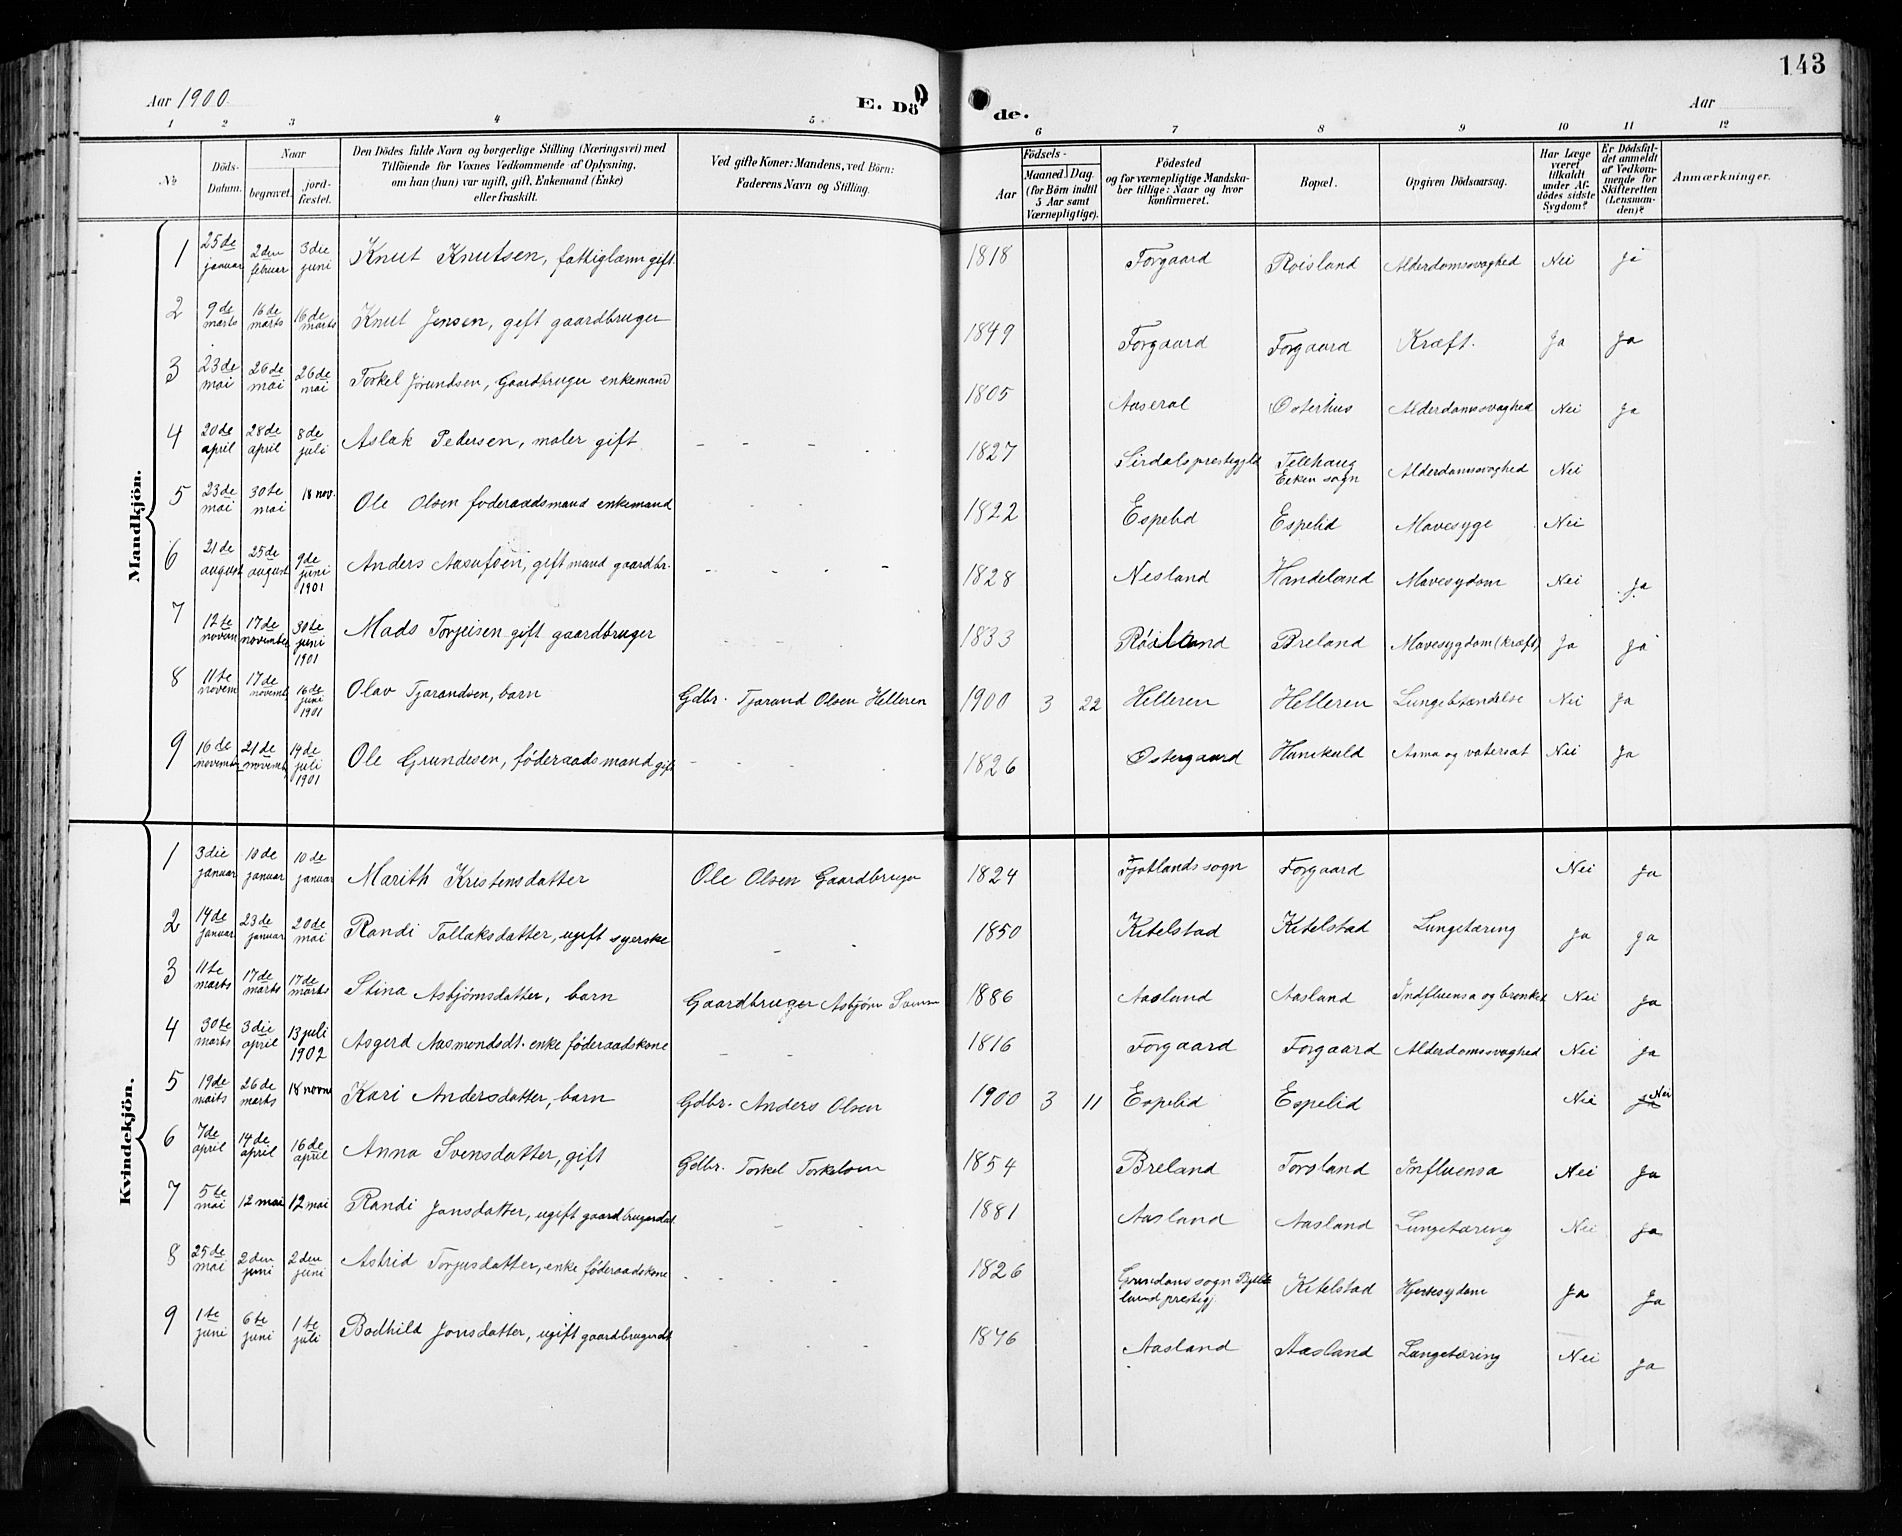 143
Aar 1900.
E. Dö de.
Aar
1 2 3 4 5. 6 7 8 9 10 11 12
No
Döds-Datum.
Naar
begravet.
jord-fæstet.
Den Dödes fulde Navn og borgerlige Stilling (Næringsvei) med
Tilföiende for Voxnes Vedkommende af Oplysning,
om han (hun) var ugift, gift, Enkemand (Enke)
eller fraskilt.
Ved gifte Koner: Mandens, ved Börn:
Faderens Navn og Stilling.
Födsels-
Aar
Maaned Dag
(for Börn indtil
5 Aar samt
Værnepligtige).
Födested
og for værnepligtige Mandska-
ber tillige: Naar og hvor
konfirmeret.
Bopæl.
Opgiven Dödsaarsag.
Har Læge
været
tilkaldt
under Af-
dödes sidste
Sygdom?
Er Dödsfal-
det anmeldt
af Vedkom-
mende for
Skifteretten
(Lensman-
den)?
Anmærkninger.
Mandkjön.
1 25de januar 2den februar 3die juni Knut Knutsen, fattiglem gift. 1818 Forgaard Roisland Alderdomssvaghed Nei ja
2 9de marts 16de marts 16de marts Knut Jensen, gift gaardbruger 1849 Forgaard Forgaard Kræft. Ja Ja
3 23de mai 26de mai 26de mai Torkel Jørundsen, Gaardbruger enkemand 1805 Aaseral Østerhus Alderdomssvaghed Nei Ja
4 20de april 28de april 8de juli Aslak Pedersen, maler gift - - - - 1827 Sirdals prestegjeld Tellhaug Eeken sogn Alderdomssvaghed Nei
5 23de mai 30te mai 18 nov. Ole Olsen foderaadsmand enkemand - - 1822 Espelid Espelid Mavesyge Nei
6 21de august 25de august 9de juni 1901 Anders Aasufsen, gift mand gaardbr. - - - - 1828 Nesland Handeland Mavesygdom Nei Ja
7 12te novem 17de november 30te juni 1901 Mads Torjeisen gift gaardbruger - - 1833 Roisland Breland Mavesygdom (kræft) Ja Ja
8 11te novem 17de novemb. 16de juni 1901 Olav Tjarandsen, barn Gdbr. Tjarand Olsen Helleren 1900 3 22 Helleren Helleren Lungebtændelse Nei Ja
9 16de november 21de novemb 14de juli 1901 Ole Grundesen, føderaadsmand gift - - - - 1826 Østergaard Hunskuld Asma og vatersot Nei Ja
Kvindekjön.
1 3die januar 10de januar 10de januar Marith Kristensdatter Ole Olsen Gaardbruger 1824 Fjotlands sogn Forgaard Nei Ja
2 14de januar 23de januar 20de mai Randi Tallaksdatter, ugift syerske - - 1850 Ketelstad Ketelstad Lungetæring Ja Ja
3 11te marts 17de marts 17de marts Stina Asbjørnsdatter, barn Gaardbruger Asbjørn 1886 Aasland Aasland Indfluensa og bronket Nei Ja
4 30te marts 3die april 13 juli 1902 Asgerd Aasmondsdt. enke føderaadskone - - 1816 Forgaard Forgaard Alderdomssvaghed Nei Ja
5 19de marts 26de marts 18 novm Kari Andersdatter, barn Gdbr. Anders Olsen 1900 3 11 Espelid Espelid Nei Ja Nei
6 7de april 14de april 16de april Anna Svensdatter, gift Gdbr. Torkel Torkelsen 1854 Breland Torsland Influensa Nei Ja
7 5te mai 12 mai 12 mai Randi Jonsdatter, ugift gaardbrugerdat - - 1881 Aasland Aasland Lungetæring Nei Ja
8 25de mai 2den juni 2den juni Astrid Torjusdatter, enke føderaadskone - - - - 1826 sogn land prestgj Ketelstad Hjertesygdom Ja Ja
9 1te juni 6te juni 1te juli Bodhild Jonsdatter, ugift gaardbrugerdt - - - 1876 Aasland Aasland Lungetæring Nei Ja